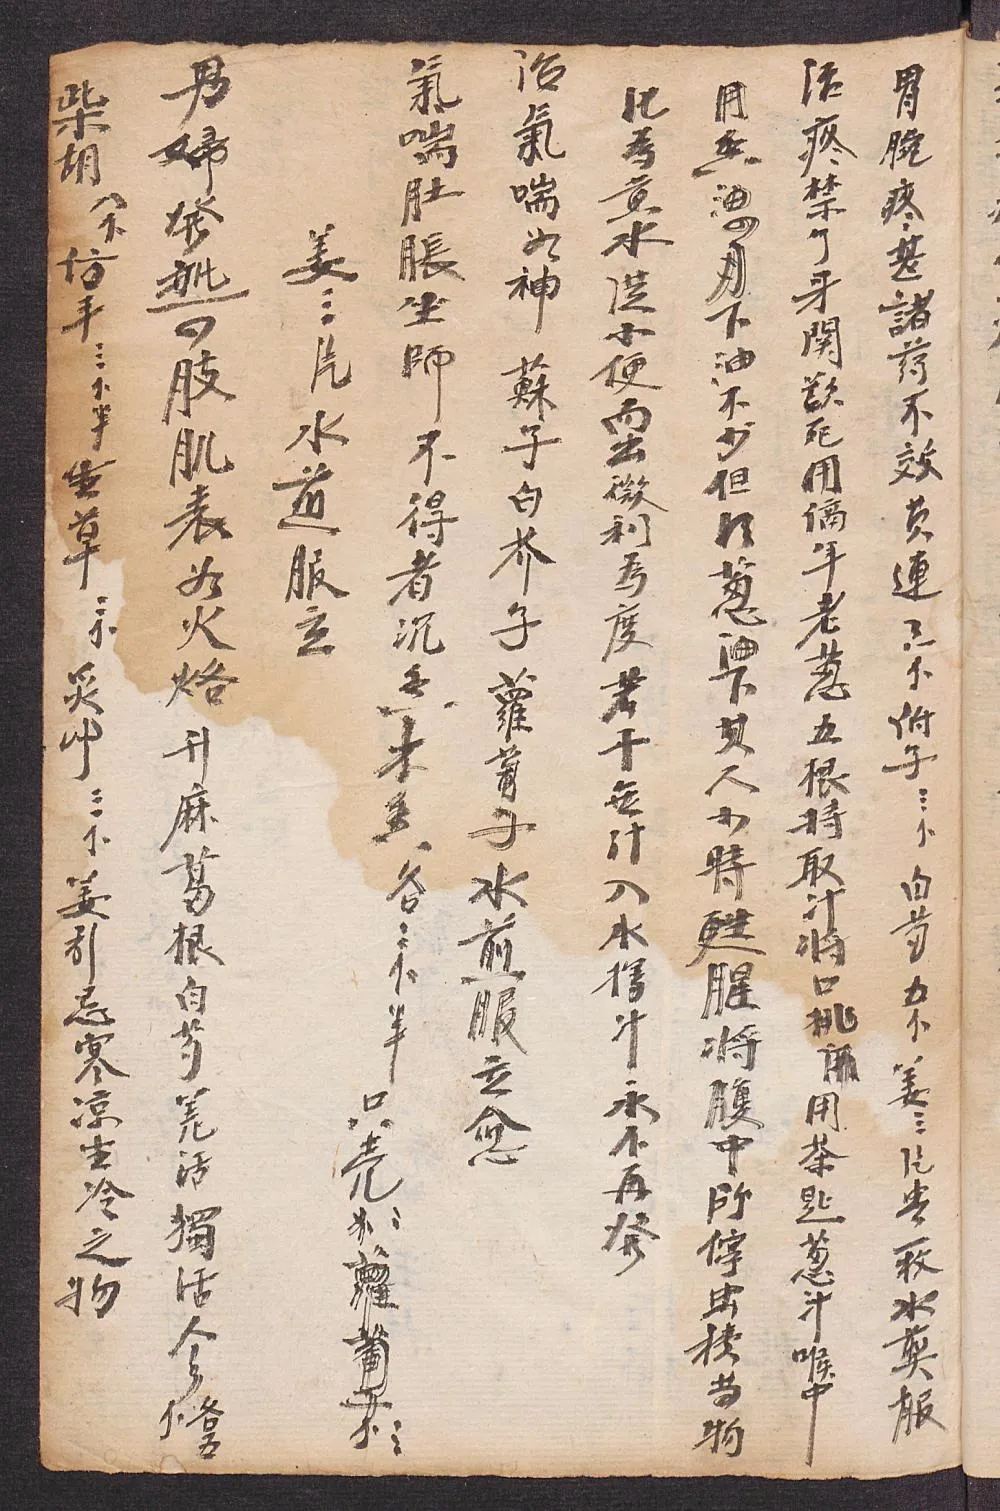 胃脘疼甚諸药不效黄連三个付子三个白芍五个姜三片枣一枚水煎服
治疼禁了牙関欲死用隔年老葱五根搗取汁將口挑開用茶匙葱汁喉中
用香油四月下油不少但得葱油下其人少時甦腥將腹中所停虫積等物
化為黄水從小便而出微利為度若干無汁入水搗汁永不再發
治氣喘如神 蘇子白芥子蘿蔔子水煎服立愈
氣喘肚脹坐師不得者沉香木香各二个半只壳二个蘿蔔子二个
姜三片水道服立
男婦發熱四肢肌表如火烙 升麻葛根白芍羌活獨活人參各五个
柴胡八个仿丰三个半生草二个炙草三个姜引忌寒凉生冷之物